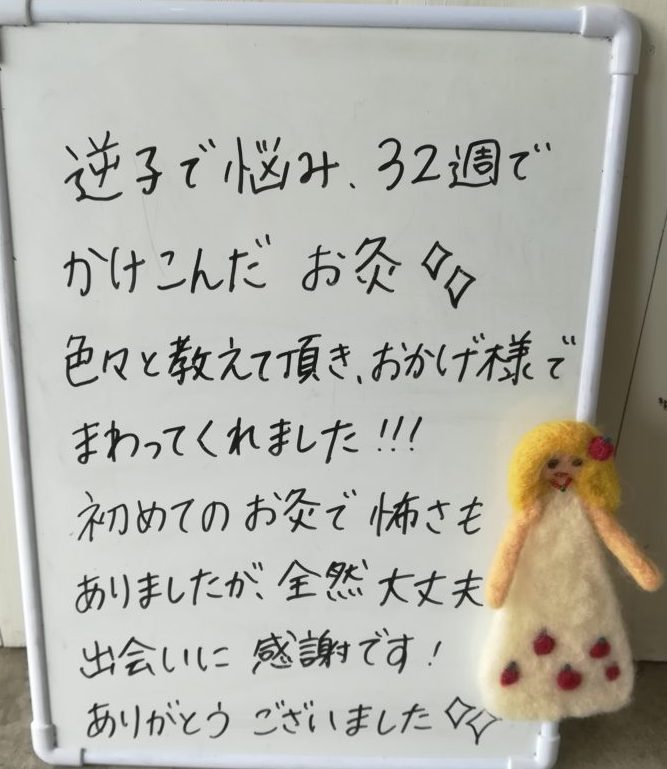 逆子で悩み、32週で
かけこんだ お灸
色々と教えて頂き、おかげ様で
まわってくれました!!!
初めてのお灸で怖さも
ありましたが、全然大丈夫
出会いに感謝です!
ありがとうございました